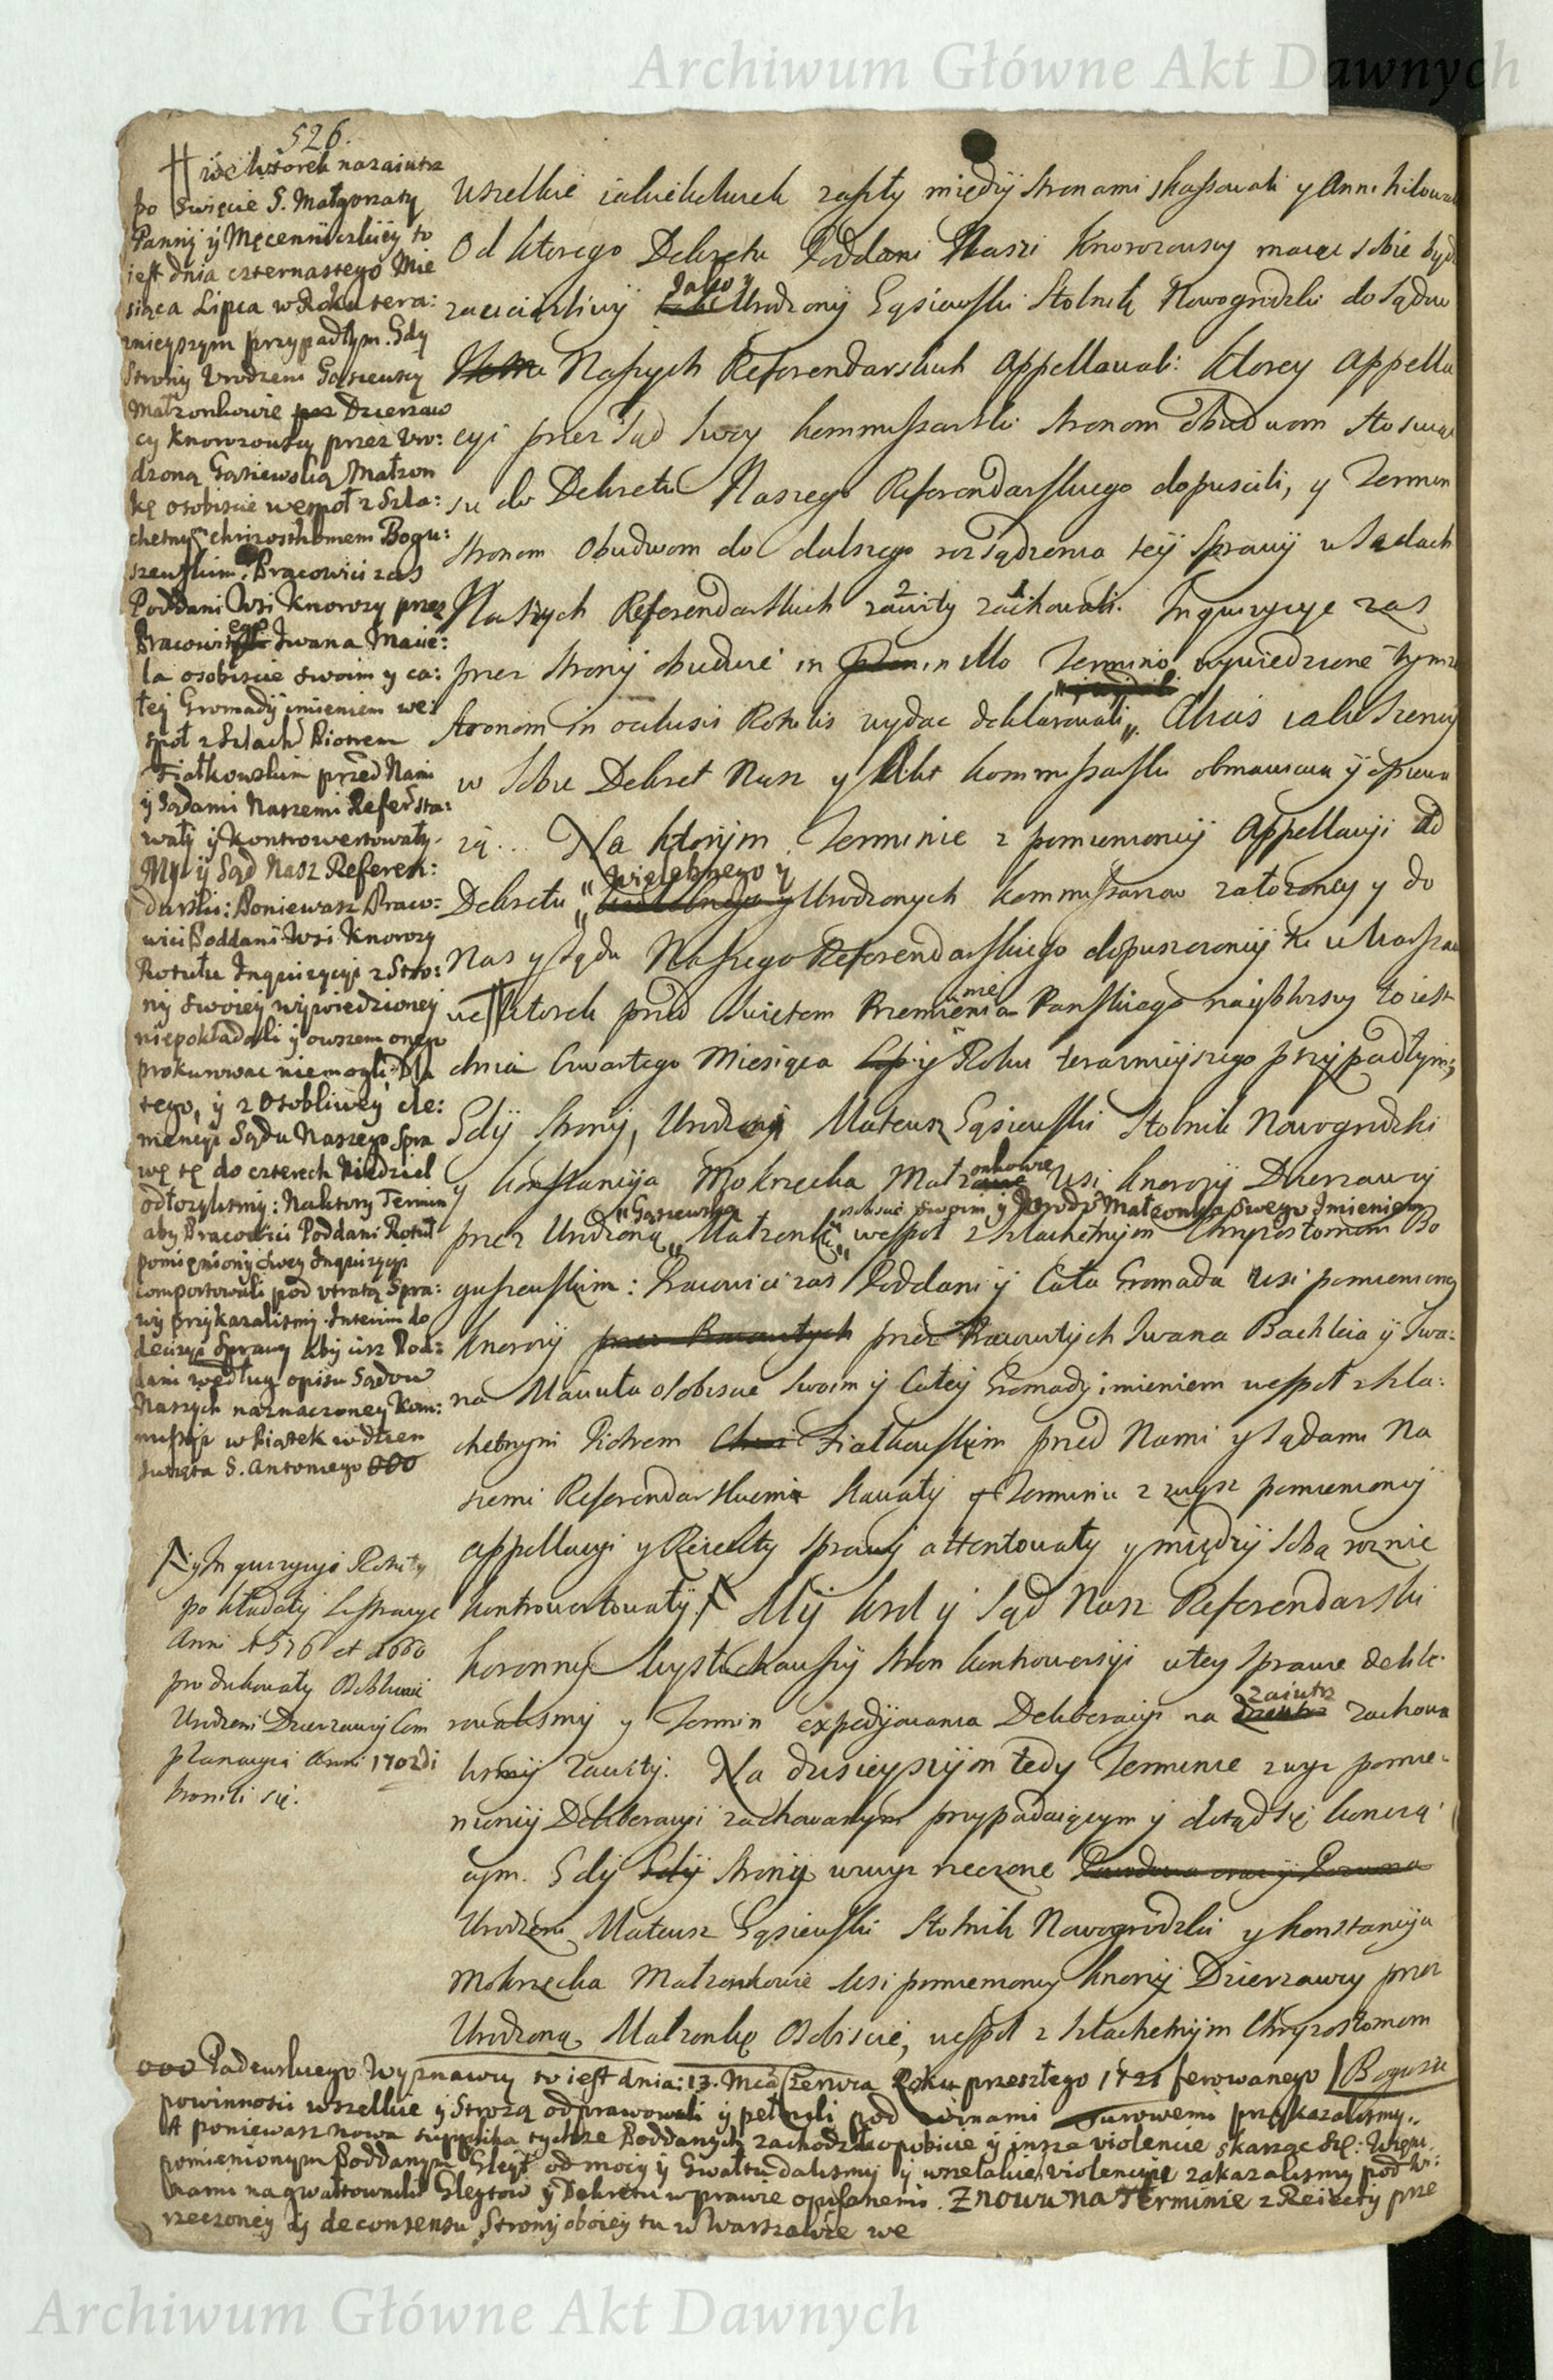 Archiwum Główne Akt Dawnych
526.
we Wtorek nazaiutrz
po Swięcie S. Małgorzaty
Panny y Męczenniczkiey to
iest dnia czternastego Mie
siąca Lipca w Roku tera:
znieyszym przypadłym. Gdy
Strony Urodzeni Gąsiewscy
Małzonkowie Dzierzaw
cy Knorozowscy przez Uro:
dzoną Gąsiewską Małzon
kę osobiscie wespoł z Szla:
chetnym Chrizosthomem Bogu:
szewskim. Pracowici zas
Poddani Wsi Knorozy przez
Pracowitego Iwana Macie:
la osobiscie swoim y ca:
łey Gromady imieniem we:
społ z Szlach Piotrem
Fiałkowskim przed Nami
y Sądami Naszemi Refer sta:
wały y kontrowertowały.
My y Sąd Nasz Referen:
darski: Poniewasz Praco:
wici Poddani Wsi Knorozy
Rotułu Inquizycyi z Stro:
ny swoiey wywiedzioney
niepokładali y owszem onego
prokurowac niemogli, Dla
tego, y z Osobliwey cle:
mencyi Sądu Naszego Spra
wę tę do czterech Niedziel
odłozylismy: Naktory Termin
aby Pracowici Poddani Rotuł
pomieniony swey Inquizycyi
comportowali pod utratą Spra:
wy przykazalismy. Interim do
decizyi Sprawy aby cisz Pod:
dani według opisu Sądow
Naszych naznaczoney Kom:
missyi w Piątek w dzien
Swięta S. Antoniego ooo
y Inquizycyi Rotuły
pokładały Lustracye
Anni 1576 et 1660
produkowały
Urodzeni Dzierzawcy Com
Anni 1702di
bronili się.
Wszelkie iakiekolwiek zaszły między stronami skassowali y Annihilowali
Od ktorego Dekretu Poddani Naszi Knorozowscy maiąc sobie bydz
zauciązliwy Jako y Urodzony Gąsiewski Stolnik Nowogrodzki do Sądow
Naszych Referendarskich appellowali: ktorey appella
cyi przez Sąd swoy kommissarski stronom Obudwom stosuiąc
się do Dekretu Naszego Referendarskiego dopuscili, y Termin
stronom Obudwom do dalszego rozsądzenia tey Sprawy w Sądach
Naszych Referendarskich zawity zachowali. Inquizycye zas
przez strony obudwie in illo Termino wywiedzione tymze
stronom in oclusis Rotulis wydac deklarowali. Quas iako szerzey
w Sobie Dekret Nasz y Akt kommissarski obmawia y opiewa
ią... Na ktorym Terminie z pomienioney Appellacyi od
Dekretu Wielebnego y Urodzonych kommissarzow załozoney y do
Nas y Sądu Naszego Referendarskiego dopuszczoney tu w Warszaw
we Wtorek przed Swiętem Przemienienia Panskiego naybliszy to iest
dnia Czwartego Miesiąca y Roku teraznieyszego przypadłym;
Gdy strony, Urodzony Mateusz Gąsiewski Stolnik Nowogrodzki
y konstancyia Mokrzecka Małzonkowie Wsi knorozy Dzierzawcy
osobiscie swoim y Urodz Małzonka swego Imieniem
przez Urodzoną Gąsiewską Małzonkę wespoł z Szlachetnym Chryzostomem Bo
guszewskim: Pracowici zas Poddani y Cała Gromada Wsi pomienioney
knorozy przez Pracowitych przez Pracowitych Iwana Bachleia y Iwa:
na Maciuła osobiscie swoim y Całey Gromady imieniem wespoł z Szla:
chetnym Piotrem Fiałkowskim przed Nami y Sądami Na
szemi Referendarskiemi stawały y Terminu z zwysz pomienioney
appellacyi y Reiekty sprawy attentowały y między Sobą roznie
kontrowertowały. My krol y Sąd Nasz Referendarski
koronny Wysłuchawszy stron kontrowersyi w tey sprawie delibe
rowalismy y Termin expedyowania Deliberacyi na zaiutrz zachowa
lismy zawity. Na dzisieyszym tedy Terminie z wysz pomie:
nioney Deliberacyi zachowanym przypadaiącym y dotąd się konczą
cym. Gdy Gdy strony wzwysz rzeczone
Urodzeni Mateusz Gąsiewski Stolnik Nowogrodzki y konstancyia
Mokrzecka Małzonkowie Wsi pomienioney knorozy Dzierzawcy przez
Urodzoną Małzonkę Osobiscie, wespoł z Szlachetnym Chryzostomem
Bogusze
ooo Padewskiego Wyznawcy to iest dnia: 13. Mca Czerwca Roku przeszłego 1721 ferowanego
powinnosci wszelkie y Strozą odprawowali y pełnili pod winami surowemi przykazalismy.
A poniewasz nowa tychze Poddanych zachodziło pobicie y insze violencie skarząc się: Więc
pomienionym Poddanym Gleyt od mocy y Gwałtu dalismy y wszelakie violencyie zakazalismy pod wi:
nami na gwałtownikow Gleytow y Dekretu w prawie opisanemi. Znowu na Terminie z Reiekty prze
rzeczoney y de consensu Strony oboiey tu w Warszawie we
Archiwum Główne Akt Dawnych